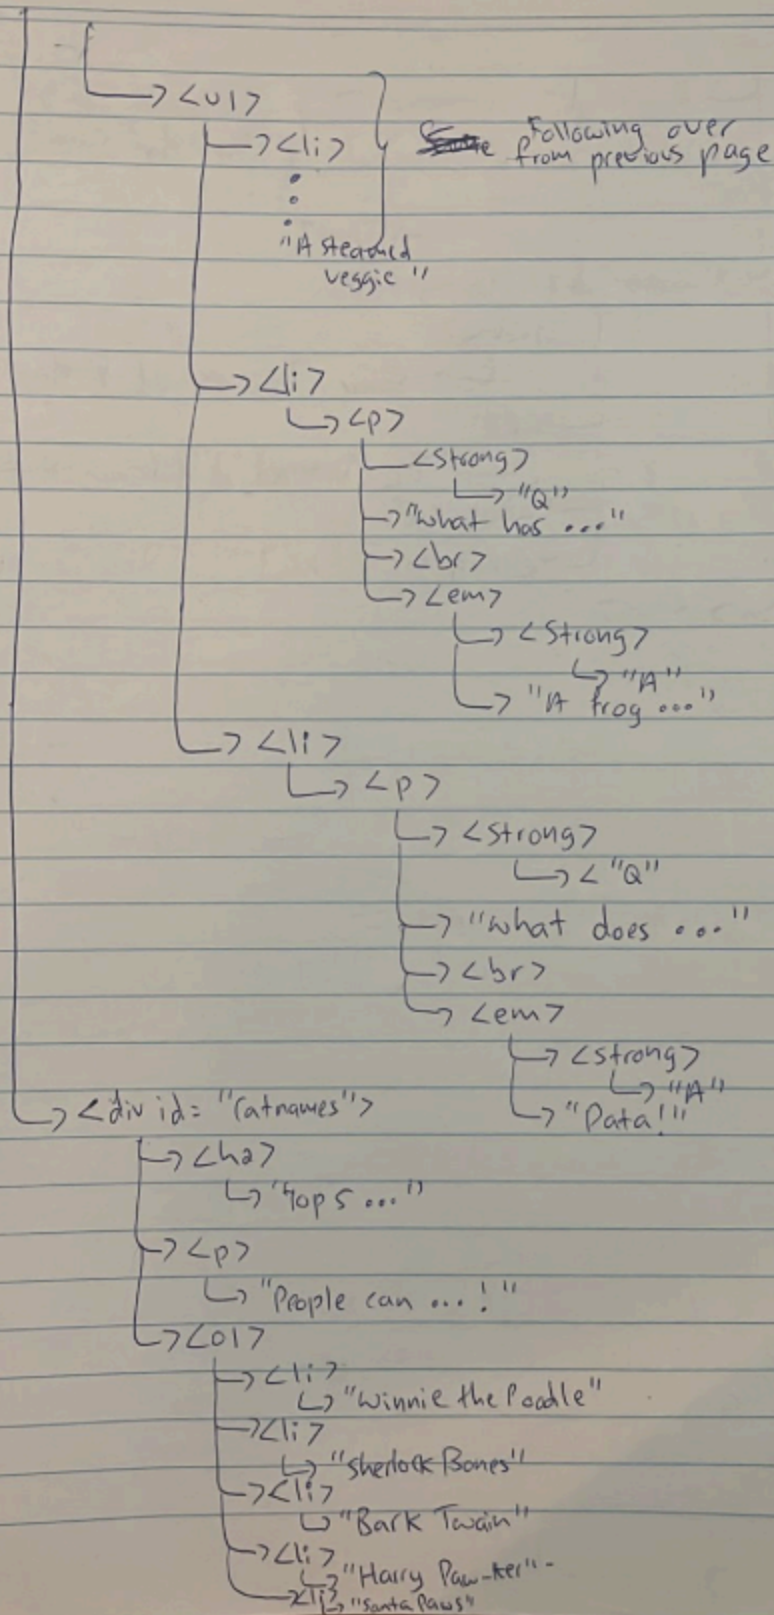 <ul>
<li>
Following over
from previous page
"A steamed
veggie"
<li>
<p>
<strong>
"Q"
"what has ..."
<br>
<em>
<strong>
"A"
"A frog ..."
<li>
<p>
<strong>
< "Q"
"what does ..."
<br>
<em>
<strong>
"A"
"Data!"
<div id= "catnames">
<h2>
"Top 5 ..."
<p>
"People can ... !"
<ol>
<li>
"Winnie the Poodle"
<li>
"Sherlock Bones"
<li>
"Bark Twain"
<li>
"Harry Paw-ter"
<li>
"Santa Paws"